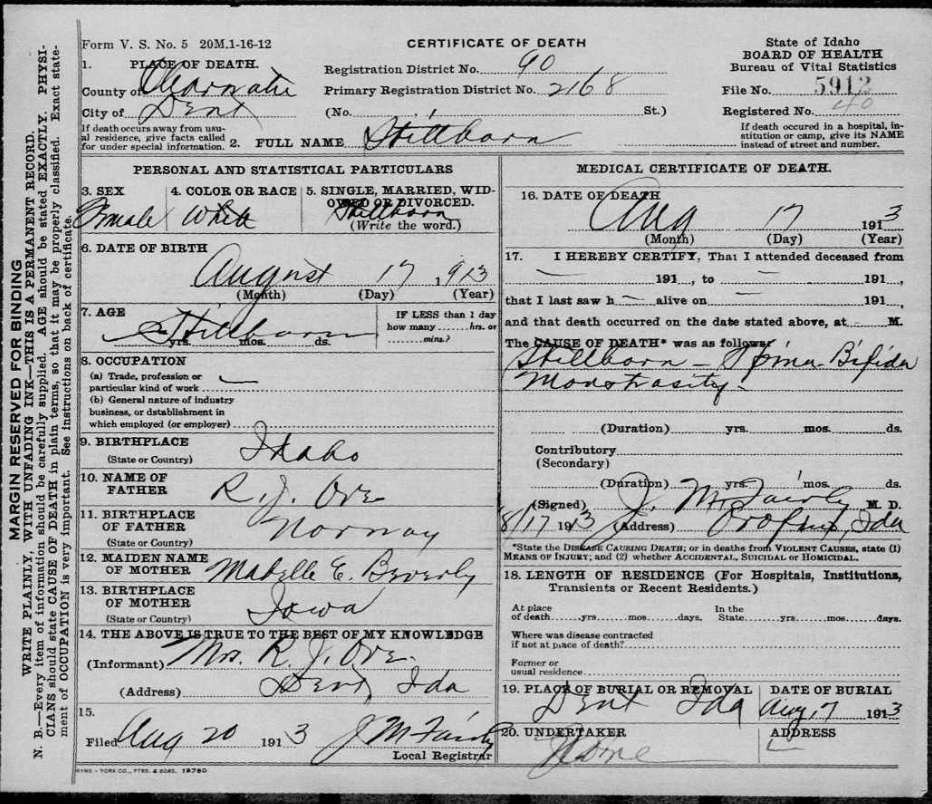 Form V. S. No. 5 20M.1-16-12
CERTIFICATE OF DEATH
State of Idaho
BOARD OF HEALTH
Bureau of Vital Statistics
1. PLACE OF DEATH.
County of
City of Dent
If death occurs away from usu-
al residence, give facts called
for under special information.
Registration District No. 90
Primary Registration District No. 2168
(No. St.)
File No. 5912
Registered No. 40
If death occured in a hospital, in-
stitution or camp, give its NAME
instead of street and number.
2. FULL NAME Stillborn
PERSONAL AND STATISTICAL PARTICULARS
3. SEX
Female
4. COLOR OR RACE
White
5. SINGLE, MARRIED, WID-
OWED OR DIVORCED.
Stillborn
(Write the word.)
6. DATE OF BIRTH
August 17, 913
(Month) (Day) (Year)
7. AGE
Stillborn
yrs. mos. ds.
IF LESS than 1 day
how many hrs. or
mins.?
8. OCCUPATION
(a) Trade, profession or
particular kind of work —
(b) General nature of industry
business, or dstablishment in
which employed (or employer)
9. BIRTHPLACE
(State or Country) Idaho
10. NAME OF
FATHER R. J. Ove
11. BIRTHPLACE
OF FATHER Norway
(State or Country)
12. MAIDEN NAME
OF MOTHER Mabelle E. Beverly
13. BIRTHPLACE
OF MOTHER Iowa
(State or Country)
14. THE ABOVE IS TRUE TO THE BEST OF MY KNOWLEDGE
(Informant) Mrs. R. J. Ove.
(Address) Dent Ida
15.
Filed Aug 20 1913 J M Fairly
Local Registrar
MEDICAL CERTIFICATE OF DEATH.
16. DATE OF DEATH
Aug 17 1913
(Month) (Day) (Year)
17. I HEREBY CERTIFY, That I attended deceased from
— 191 , to — 191 ,
that I last saw h — alive on — 191
and that death occurred on the date stated above, at M.
The CAUSE OF DEATH* was as follows:
Stillborn - Spina-Bifida
Monstrasity.
(Duration) yrs. mos. ds.
Contributory
(Secondary)
(Duration) yrs. mos. ds.
(Signed) J. M. Fairly M. D.
8/17 1913 (Address) Orofino, Ida
*State the DISEASE CAUSING DEATH; or in deaths from VIOLENT CAUSES, state (1)
MEANS OF INJURY; and (2) whether ACCIDENTAL, SUICIDAL OR HOMICIDAL.
18. LENGTH OF RESIDENCE (For Hospitals, Institutions,
Transients or Recent Residents.)
At place
of death yrs mos days.
In the
State yrs. mos. days.
Where was disease contracted
if not at place of death?
Former or
usual residence
19. PLACE OF BURIAL OR REMOVAL
Dent Ida
DATE OF BURIAL
Aug 17 1913
20. UNDERTAKER
ADDRESS
MARGIN RESERVED FOR BINDING
WRITE PLAINLY, WITH UNFADING INK—THIS IS A PERMANENT RECORD.
N. B.—Every item of information should be carefully supplied. AGE should be stated EXACTLY. PHYSI-
CIANS should state CAUSE OF DEATH in plain terms, so that it may be properly classified. Exact state-
ment of OCCUPATION is very important. See instructions on back of certificate.